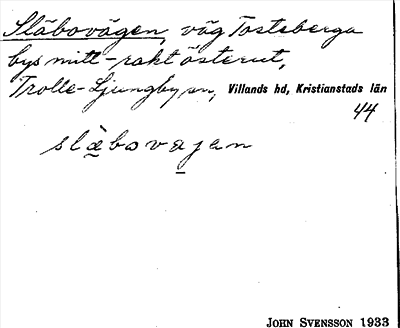 Släbovägen, väg Tosteberga
bys mitt - rakt österut,
Trolle-Ljungby sn, Villands hd, Kristianstads län
44
slä̀bovajan
JOHN SVENSSON 1933